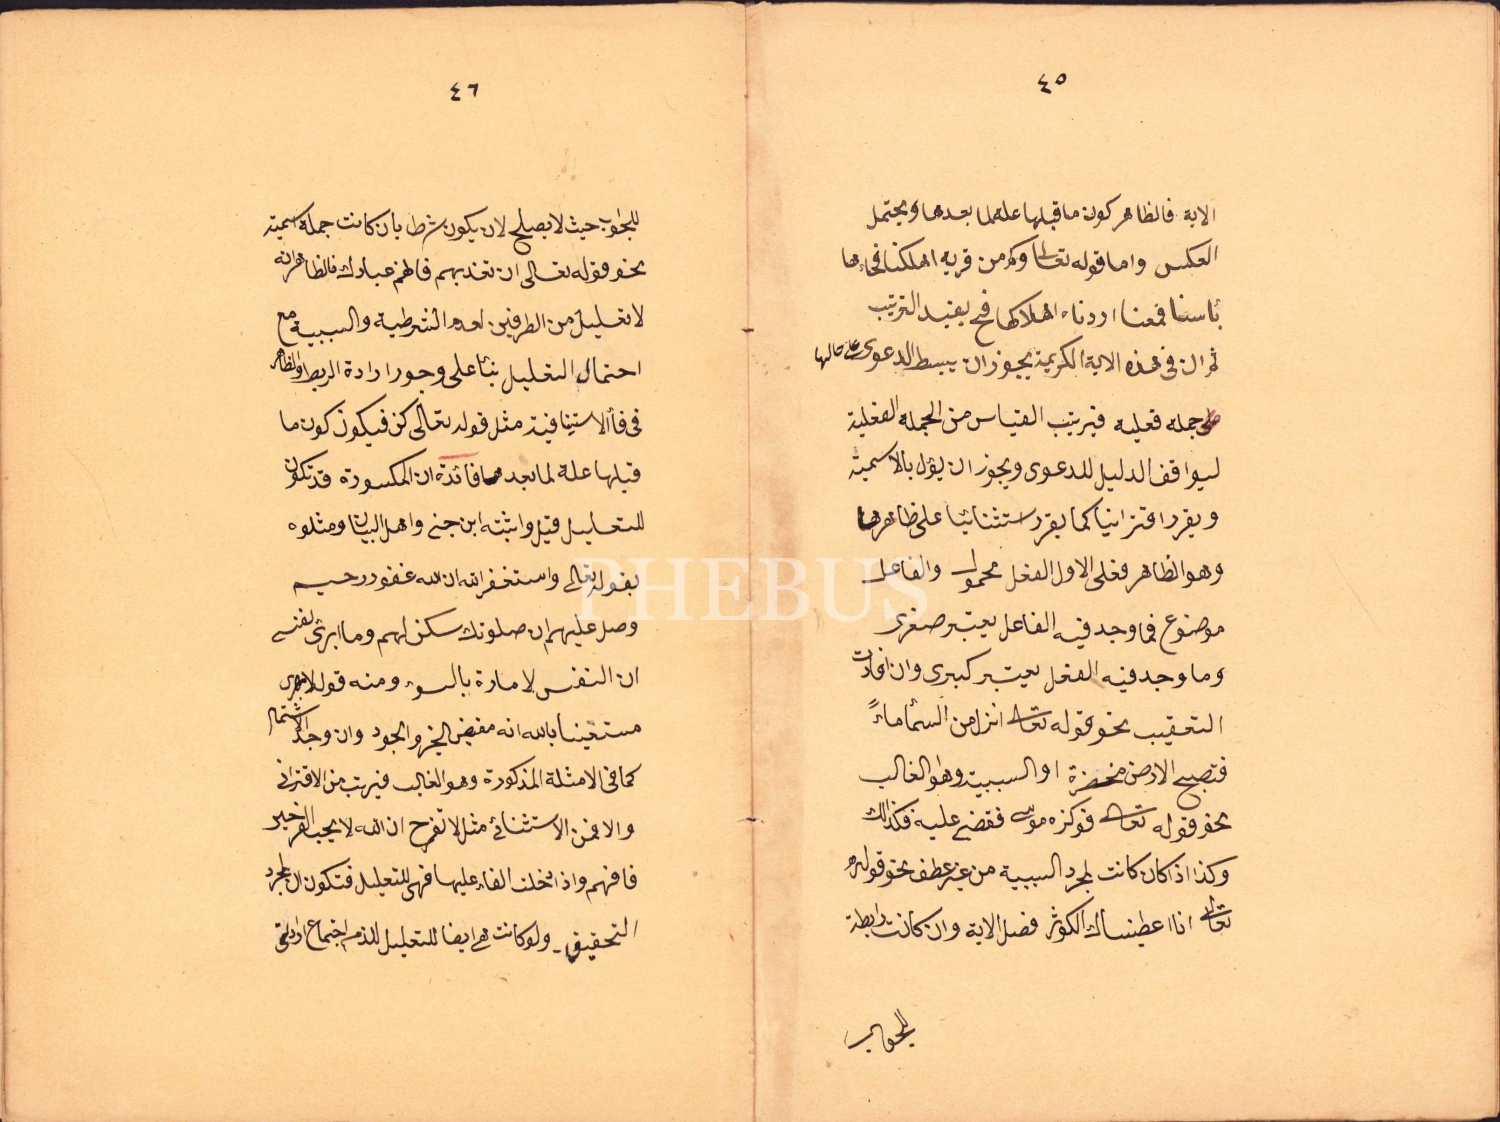 ٤٥
الاية فالظاهر كون ما قبلها علة لما بعدها ويحتمل
العكس واما قوله تعالى وكم من قرية اهلكناها فجاءها
بأسنا فمعناه اردنا اهلاكها فح يفيد الترتيب
ثم ان فى هذه الاية الكريمة يجوز ان يبسط الدعوى على حالها
جملة فعلية فيرتب القياس من الجملة الفعلية
ليوافق الدليل للدعوى ويجوز ان يؤل بالاسمية
ويقرر اقترانيا كما يقرر استثنائيا على ظاهرها
وهو الظاهر فعلى الاول الفعل محمول والفاعل
موضوع فما وجد فيه الفاعل يعتبر صغرى
وما وجد فيه الفعل يعتبر كبرى وان افادت
التعقيب نحو قوله تعالى انزل من السماء ماءً
فتصبح الارض مخضرة او السببية وهو الغالب
نحو قوله تعالى فوكزه موسى فقضى عليه فكذلك
وكذا اذا كان كانت لمجرد السببية من غير عطف نحو قوله
تعالى انا اعطيناك الكوثر فصل الاية وان كانت رابطة
للجواب
٤٦
للجواب حيث لا يصلح لان يكون شرط بان كانت جملة اسمية
نحو قوله تعالى ان تعذبهم فانهم عبادك فالظاهر انه
لا تعليل من الطرفين لعدم الشرطية والسببية مع
احتمال التعليل بناء على وجور ارادة الربط والظاهر
فى فأ الاستينافية مثل قوله تعالى كن فيكون كون ما
قبلها علة لما بعدها فائدة ان المكسورة قد تكون
للتعليل قيل واثبته ابن جنى واهل البيان ومثلوه
بقوله تعالى واستغفر الله ان الله غفور رحيم
وصل عليهم ان صلوتك سكن لهم وما ابرئ نفسى
ان النفس لامارة بالسوء ومنه قوله
مستعينا بالله انه مفيض الخير والجود وان وجد الاشتمال
كما فى الامثلة المذكورة وهو الغالب فيرتب من الاقترانى
والا فمن الاستثنائى مثل لا تفرح ان الله لا يحب الفرحين
فافهم واذا دخلت الفاء عليها فهى للتعليل فتكون ان لمجرد
التحقيق ولو كانت هى ايضا للتعليل للزم اجتماع اداتى
PHEBUS